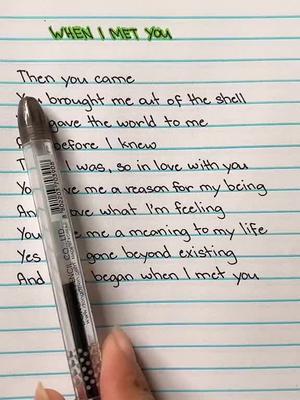 WHEN I MET YOU
Then you came
You brought me out of the shell
gave the world to me
before I knew
I was, so in love with you
You me a reason for my being
And love what I'm feeling
You me a meaning to my life
Yes gone beyond existing
And began when I met you